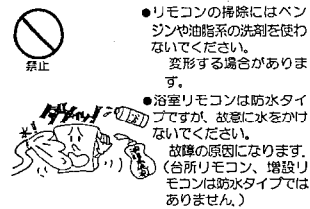 ●リモコンの掃除にはベン
ジンや油脂系の洗剤を使わ
ないでください。
変形する場合がありま
す。
●浴室リモコンは防水タイ
プですが、故意に水をかけ
ないでください。
故障の原因になります。
(台所リモコン、増設リ
モコンは防水タイプでは
ありません。)
禁止